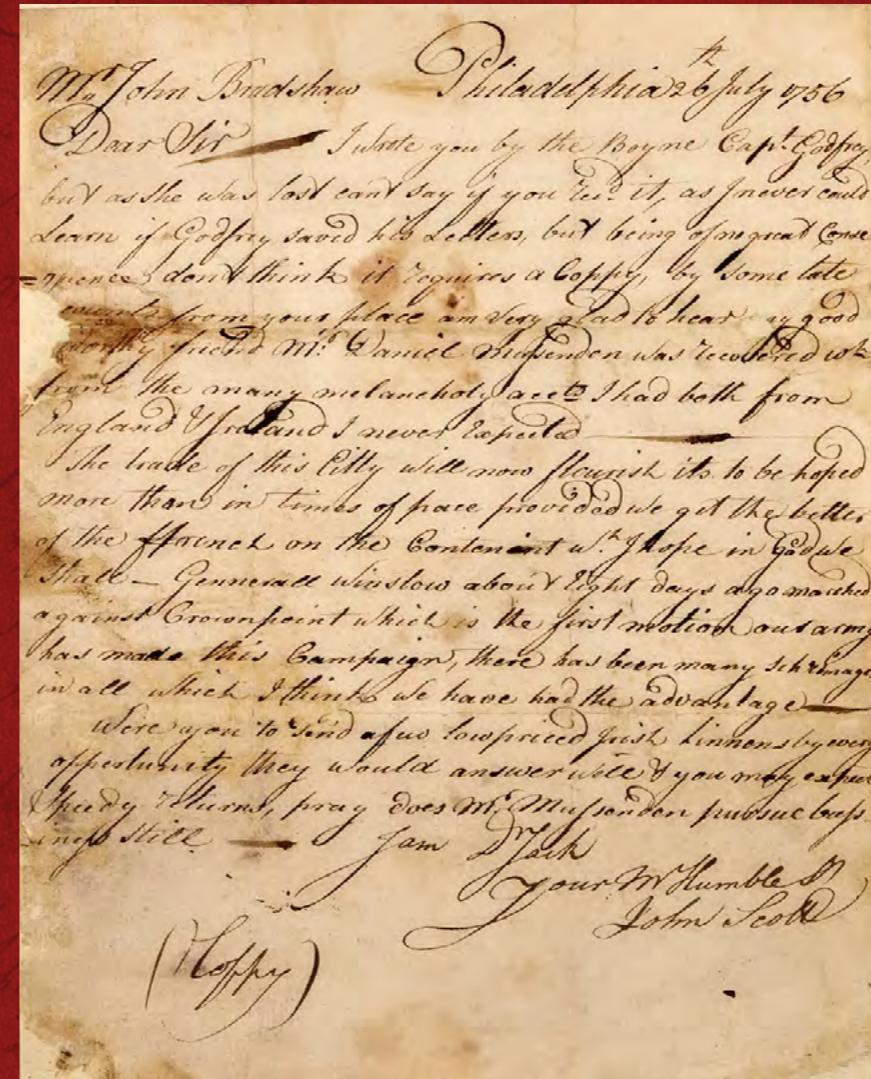 Mr John Bradshaw Philadelphia 26th July 1756
Dear Sir — I wrote you by the Boyne Capt. Godfrey,
but as she was lost cant say if you recd. it, as I never could
Learn if Godfrey saved his Letters, but being of no great Conse
=quence, dont think it requires a Coppy, by some late
from your place am very glad to hear my good
worthy friend Mr. Daniel Mussenden was recovered wch
from the many melancholy accts I had both from
England & Ireland I never Expected —
The trade of this Citty will now flourish its to be hoped
more than in times of peace provided we get the better
of the ffrench on the Contenint wh. I hope in God we
shall — Gennerall Winslow about Eight days ago marched
against Crownpoint which is the first motion our army
has made this Campaign, there has been many
in all which I think we have had the advantage —
Were you to send a few lowpriced Irish Linnens by every
oppertunity they would answer well & you may expect
Speedy returns, pray does Mr. Mussenden pursue
still — I am Dr Jack
Your Mt Humble St
John Scott
(Coppy)